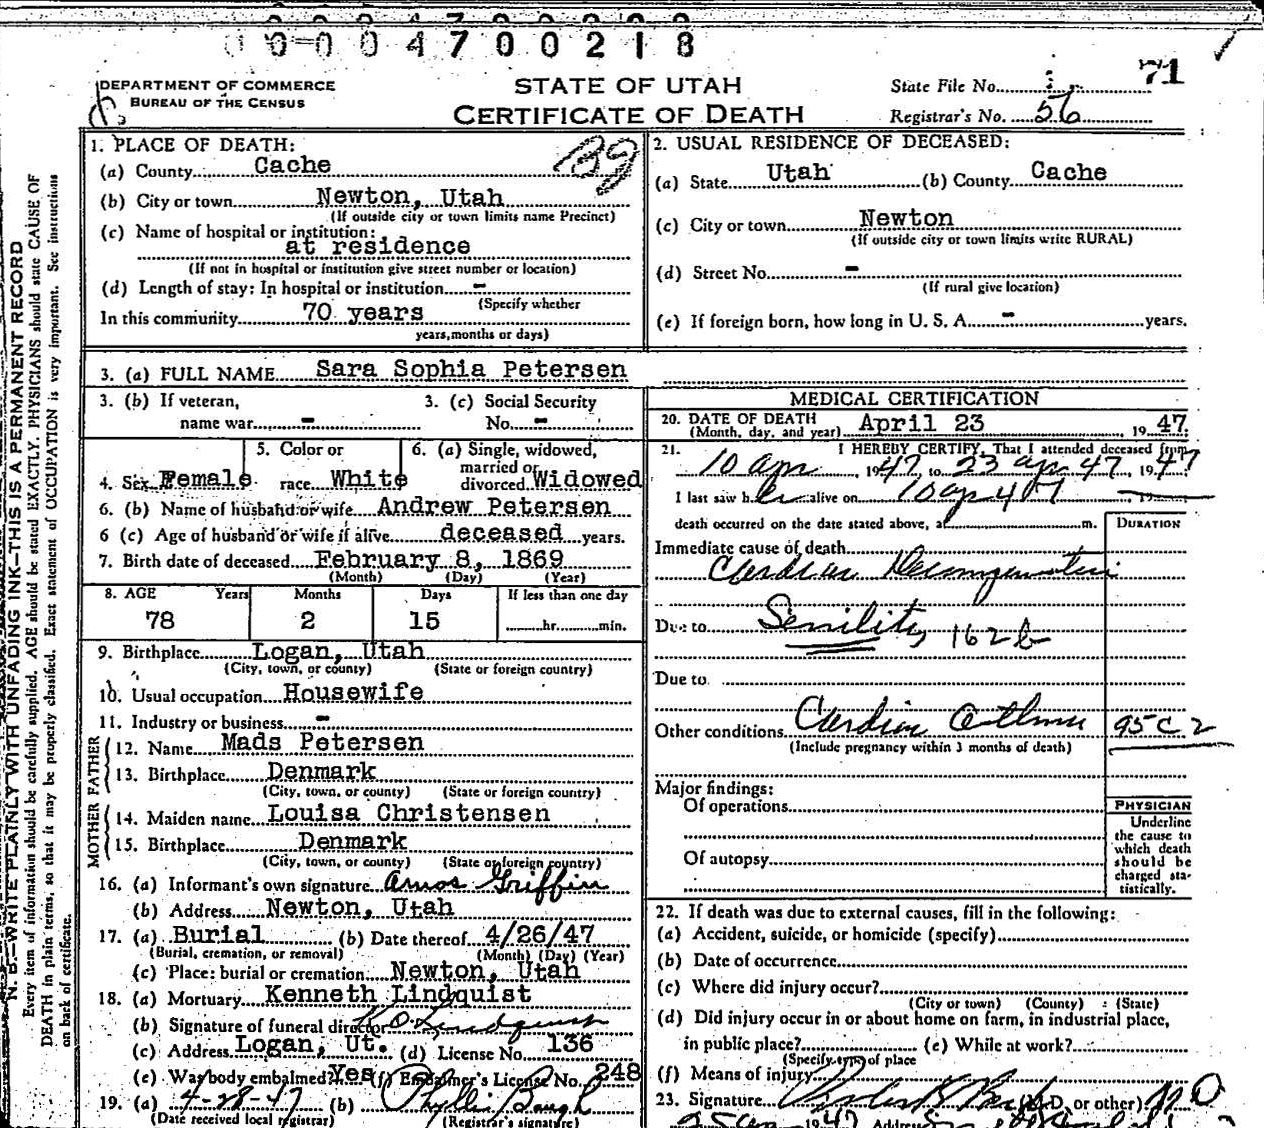 00004700218
DEPARTMENT OF COMMERCE
BUREAU OF THE CENSUS
STATE OF UTAH
CERTIFICATE OF DEATH
State File No. 71
Registrar's No. 56
N. B.—WRITE PLAINLY WITH UNFADING INK—THIS IS A PERMANENT RECORD
Every item of information should be carefully supplied. AGE should be stated EXACTLY. PHYSICIANS should state CAUSE OF
DEATH in plain terms, so that it may be properly classified. Exact statement of OCCUPATION is very important. See instructions
on back of certificate.
1. PLACE OF DEATH:
(a) County Cache
(b) City or town Newton, Utah
(If outside city or town limits name Precinct)
(c) Name of hospital or institution:
at residence
(If not in hospital or institution give street number or location)
(d) Length of stay: In hospital or institution -
(Specify whether
In this community 70 years
years, months or days)
2. USUAL RESIDENCE OF DECEASED:
(a) State Utah (b) County Cache
(c) City or town Newton
(If outside city or town limits write RURAL)
(d) Street No. -
(If rural give location)
(e) If foreign born, how long in U. S. A. - years.
3. (a) FULL NAME Sara Sophia Petersen
3. (b) If veteran, 3. (c) Social Security
name war - No. -
5. Color or 6. (a) Single, widowed,
married or
4. Sex Female race White divorced Widowed
6. (b) Name of husband or wife Andrew Petersen
6 (c) Age of husband or wife if alive deceased years.
7. Birth date of deceased February 8, 1869
(Month) (Day) (Year)
8. AGE Years Months Days If less than one day
78 2 15 hr. min.
9. Birthplace Logan, Utah
(City, town, or county) (State or foreign country)
10. Usual occupation Housewife
11. Industry or business -
FATHER
12. Name Mads Petersen
13. Birthplace Denmark
(City, town, or county) (State or foreign country)
MOTHER
14. Maiden name Louisa Christensen
15. Birthplace Denmark
(City, town, or county) (State or foreign country)
16. (a) Informant's own signature Amos Griffin
(b) Address Newton, Utah
17. (a) Burial (b) Date thereof 4/26/47
(Burial, cremation, or removal) (Month) (Day) (Year)
(c) Place: burial or cremation Newton, Utah
18. (a) Mortuary Kenneth Lindquist
(b) Signature of funeral director K. O. Lindquist
(c) Address Logan, Ut. (d) License No. 136
(e) Was body embalmed? Yes (f) Embalmer's License No. 248
19. (a) 4-28-47 (b) Phyllis Baugh
(Date received local registrar) (Registrar's signature)
MEDICAL CERTIFICATION
20. DATE OF DEATH April 23 1947
(Month, day, and year)
21. I HEREBY CERTIFY, That I attended deceased from
10 Apr 1947 to 23 Apr 47 1947
I last saw her alive on 10 apr 47 19
death occurred on the date stated above, at m.
DURATION
Immediate cause of death
Cardiac Decompensation
Due to Senility 162b
Due to
Other conditions Cardiac Asthma 95C2
(Include pregnancy within 3 months of death)
Major findings:
Of operations
Of autopsy
PHYSICIAN
Underline
the cause to
which death
should be
charged sta-
tistically.
22. If death was due to external causes, fill in the following:
(a) Accident, suicide, or homicide (specify)
(b) Date of occurrence
(c) Where did injury occur?
(City or town) (County) (State)
(d) Did injury occur in or about home on farm, in industrial place,
in public place? (e) While at work?
(Specify type of place
(f) Means of injury
23. Signature (M.D. or other) MD
1947 Address